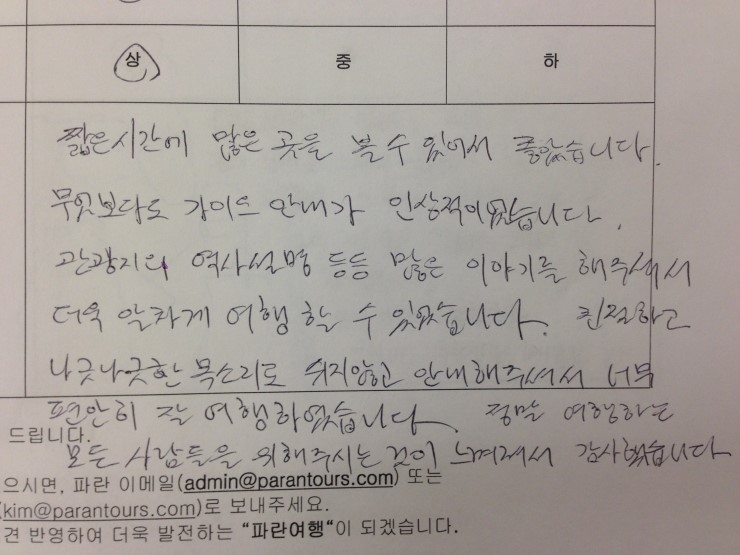 상 중 하
짧은시간에 많은 곳을 볼 수 있어서 좋았습니다.
무엇보다도 가이드 안내가 인상적이었습니다.
관광지의 역사설명 등등 많은 이야기를 해주셔서
더욱 알차게 여행 할 수 있었습니다. 친절하고
나긋나긋한 목소리로 쉬지않고 안내해주셔서 너무
편안히 잘 여행하였습니다. 정말 여행하는
드립니다.
모든 사람들을 위해주시는 것이 느껴져서 감사했습니다
으시면, 파란 이메일(admin@parantours.com) 또는
(kim@parantours.com)로 보내주세요.
견 반영하여 더욱 발전하는 "파란여행"이 되겠습니다.